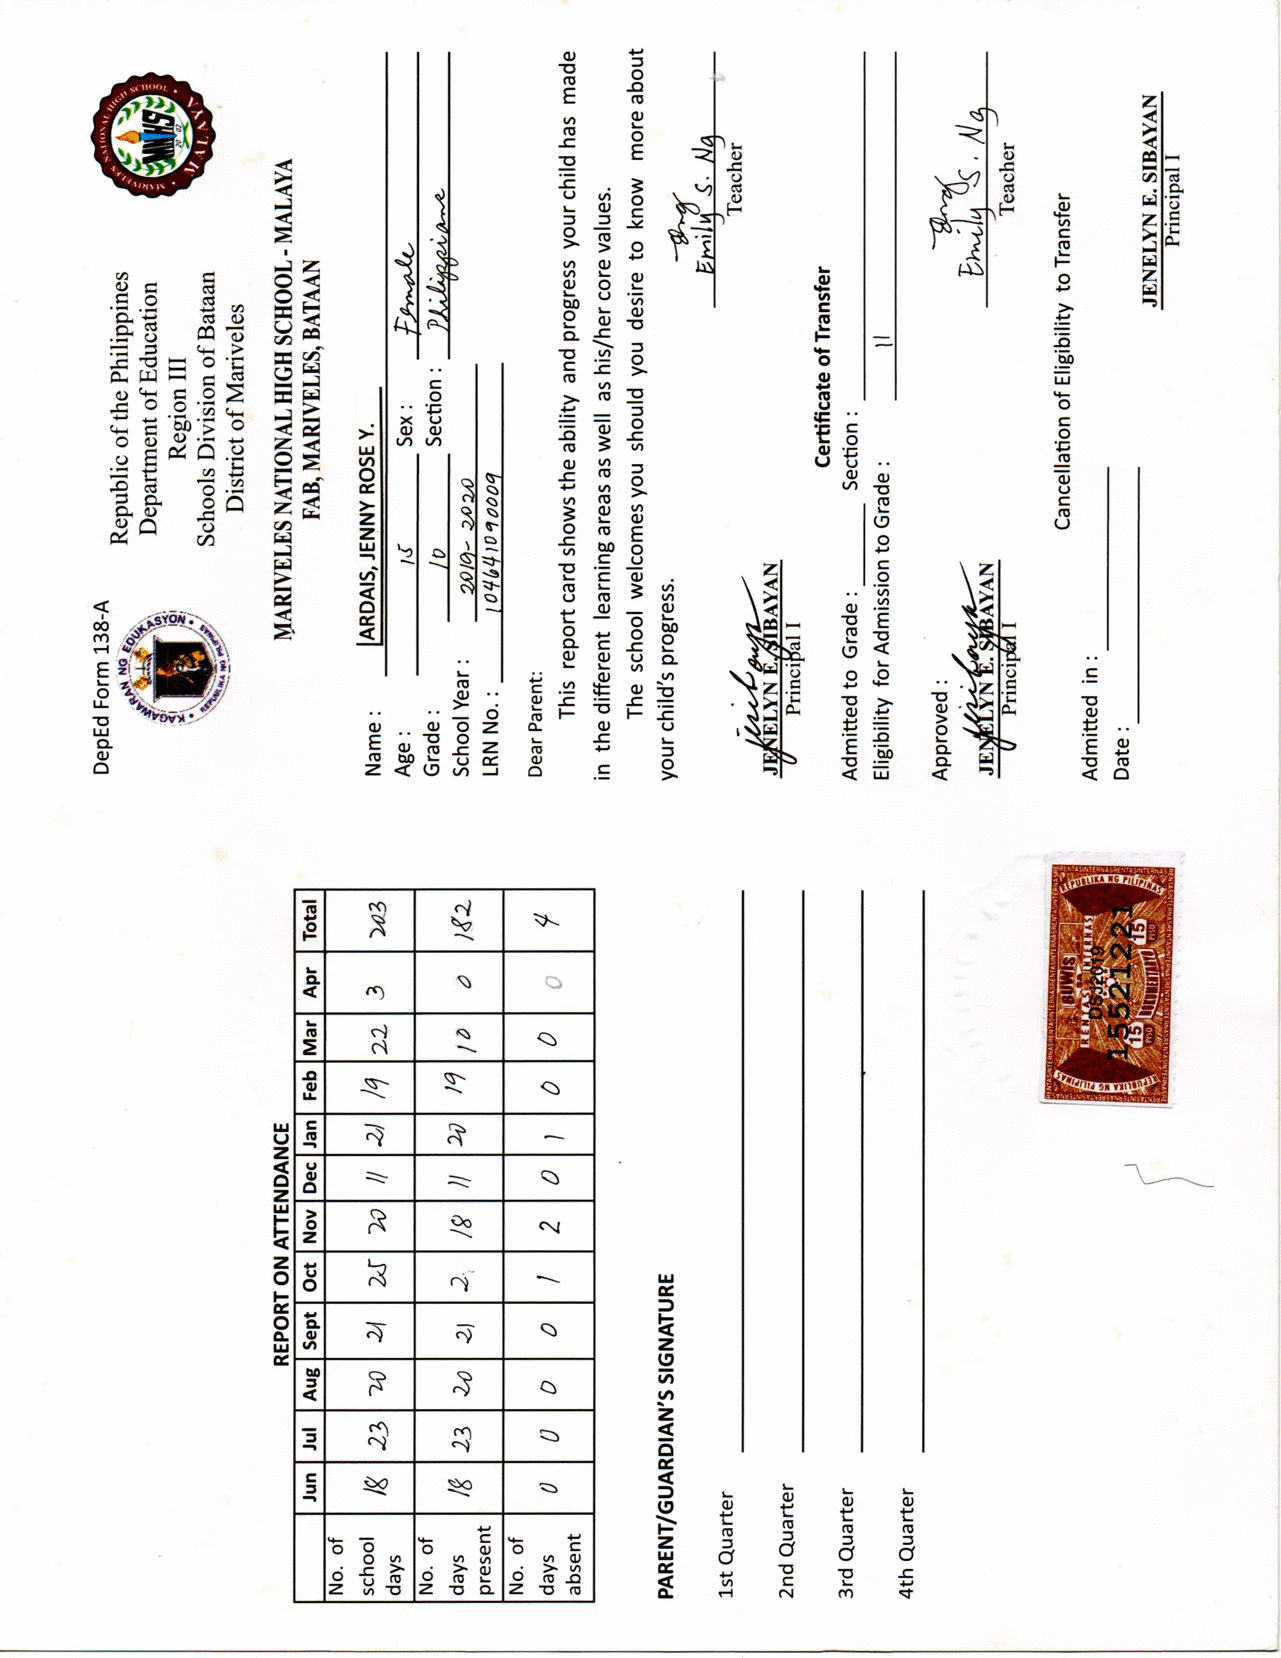 REPORT ON ATTENDANCE
Jun Jul Aug Sept Oct Nov Dec Jan Feb Mar Apr Total
No. of school days 18 23 20 21 25 20 11 21 19 22 3 203
No. of days present 18 23 20 21 2 18 11 20 19 10 0 182
No. of days absent 0 0 0 0 1 2 0 1 0 0 0 4
PARENT/GUARDIAN'S SIGNATURE
1st Quarter
2nd Quarter
3rd Quarter
4th Quarter
REPUBLIKA NG PILIPINAS
BUWIS
RENTAS INTERNAS
DSJ2019
15521221
15 PISO
DOKUMENTARYO
15 PISO
REPUBLIKA NG PILIPINAS
DepEd Form 138-A
KAGAWARAN NG EDUKASYON
REPUBLIKA NG PILIPINAS
Republic of the Philippines
Department of Education
Region III
Schools Division of Bataan
District of Mariveles
MARIVELES NATIONAL HIGH SCHOOL
MNHS
2002
MALAYA
MARIVELES NATIONAL HIGH SCHOOL - MALAYA
FAB, MARIVELES, BATAAN
Name : ARDAIS, JENNY ROSE Y.
Age : 15 Sex : Female
Grade : 10 Section : Philippiane
School Year : 2019-2020
LRN No. : 104641090009
Dear Parent:
This report card shows the ability and progress your child has made
in the different learning areas as well as his/her core values.
The school welcomes you should you desire to know more about
your child's progress.
Emily S. Ng
Teacher
JENELYN E. SIBAYAN
Principal I
Certificate of Transfer
Admitted to Grade : Section :
Eligibility for Admission to Grade : 11
Approved :
JENELYN E. SIBAYAN
Principal I
Emily S. Ng
Teacher
Cancellation of Eligibility to Transfer
Admitted in :
Date :
JENELYN E. SIBAYAN
Principal I